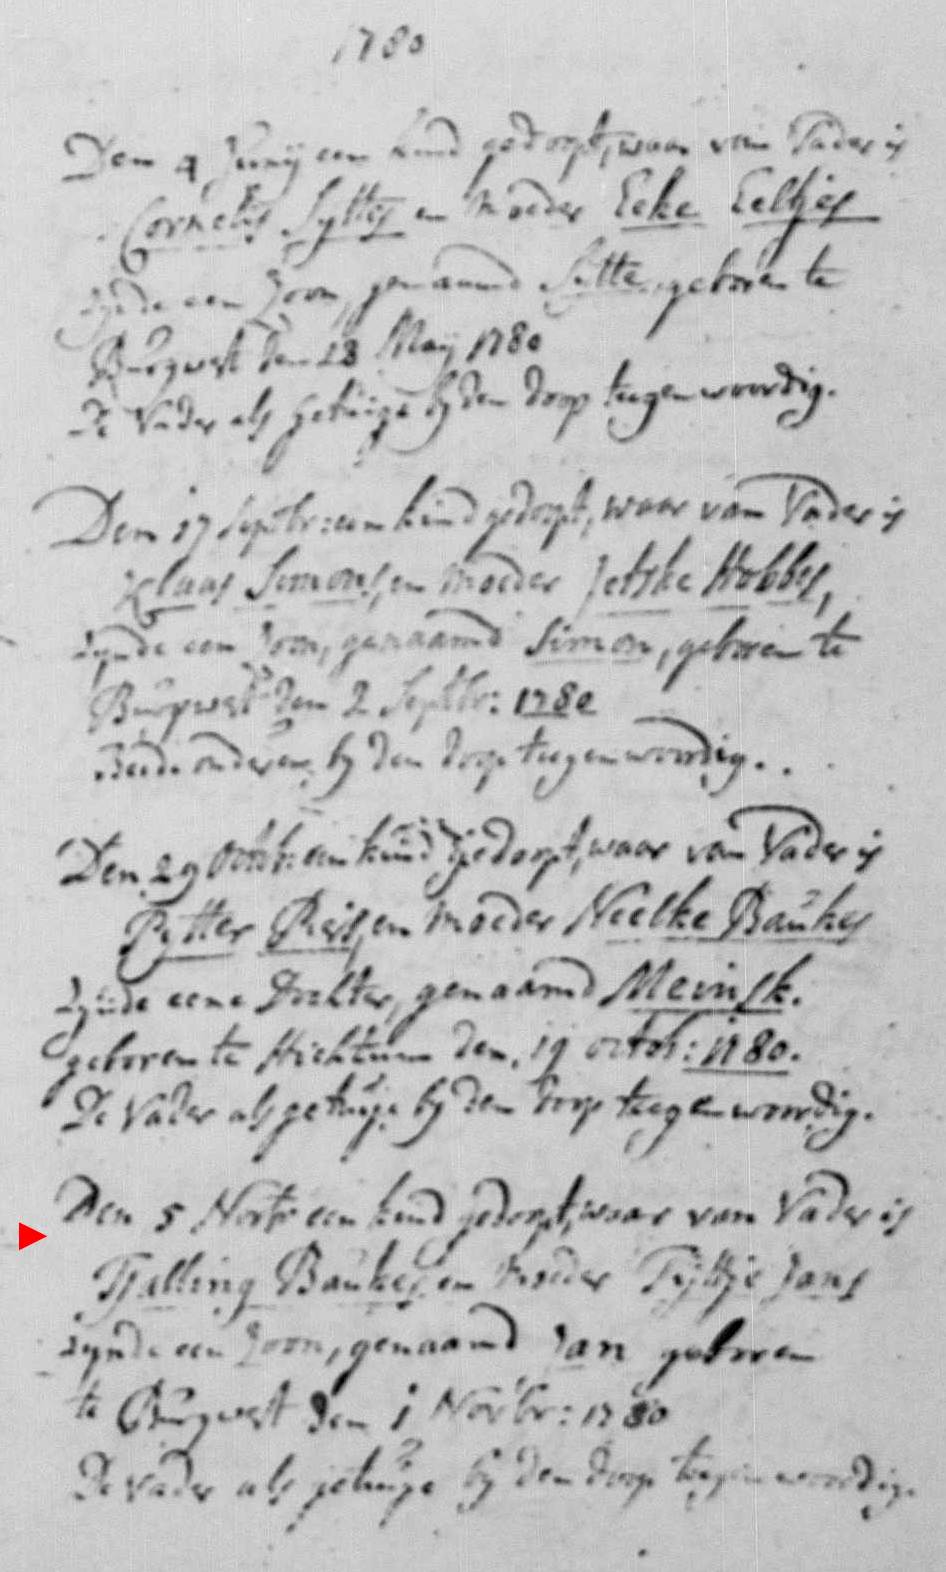 1780
Den 4 Junij een kind gedoopt, waar van Vader is
Cornelis Syttes en Moeder Eeke Eeltjes
zijnde een Zoon, genaamd Sytte, geboren te
Burgwert den 28 May 1780
De Vader als getuige by den doop teegenwoordig.
Den 17 Septbr: een kind gedoopt, waar van Vader is
Klaas Simons, en Moeder Jetske Hobbes,
zynde een Zoon, genaamd Simon, geboren te
Burgwert den 2 Septbr: 1780
Beide ouderen by den doop teegenwoordig.
Den 29 Octob: een kind gedoopt, waar van Vader is
Pytter Piers, en Moeder Neelke Baukes
zijnde eene Dochter, genaamd Meinsk.
geboren te Hichtum den 19 octob: 1780.
De Vader als getuige by den doop teegenwoordig.
Den 5 Novbr een kind gedoopt, waar van Vader is
Tjalling Baukes, en Moeder Tyttje Jans
zynde een Zoon, genaamd Jan geboren
te Burgwert den 1 Novbr: 1780
De Vader als getuige by den doop teegenwoordig.